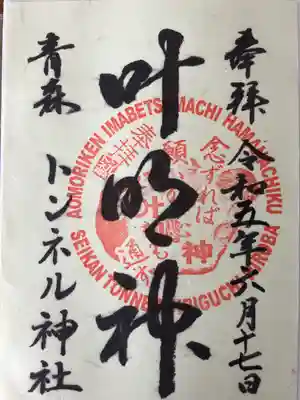 奉拝
令和五年六月十七日
叶明神
青森
トンネル神社
AOMORIKEN IMABETSUMACHI HAMANA CHIKU
SEIKAN TONNEL IRIGUCHI HIROBA
念ずれば
願
神